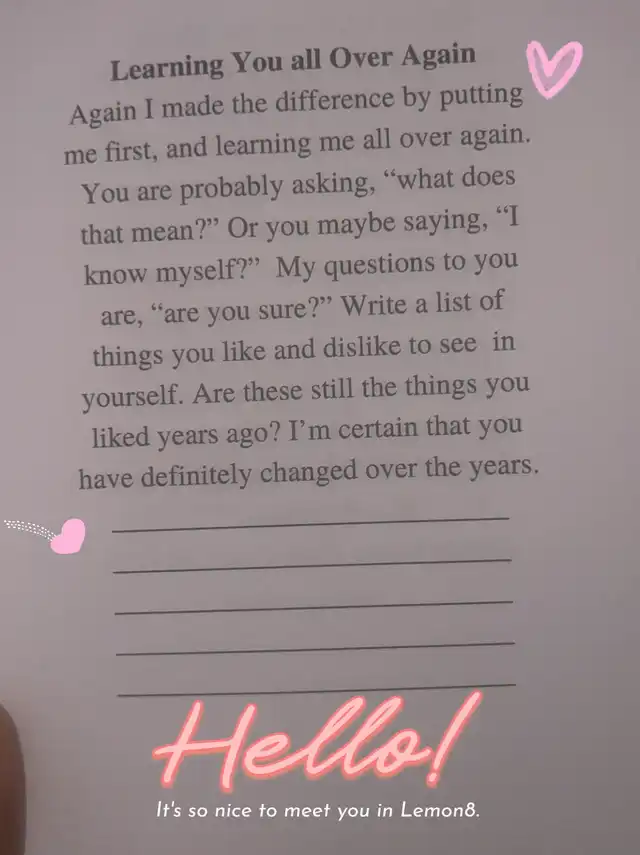 Learning You all Over Again
Again I made the difference by putting
me first, and learning me all over again.
You are probably asking, “what does
that mean?” Or you maybe saying, “I
know myself?”  My questions to you
are, “are you sure?” Write a list of
things you like and dislike to see  in
yourself. Are these still the things you
liked years ago? I’m certain that you
have definitely changed over the years.
Hello!
It's so nice to meet you in Lemon8.